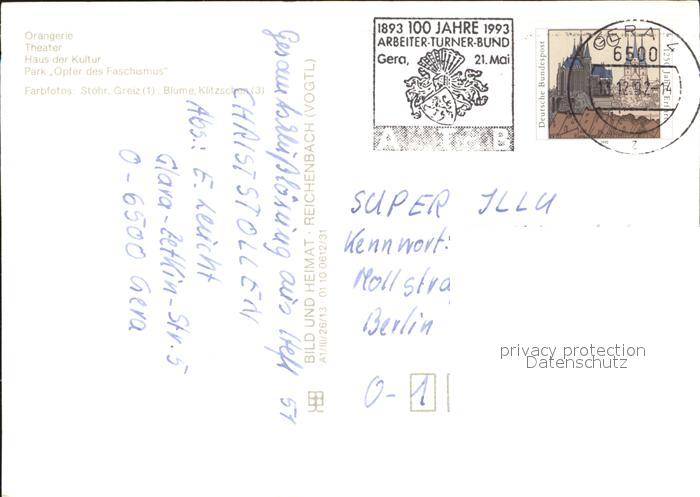 Orangerie
Theater
Haus der Kultur
Park „Opfer des Faschismus"
Farbfotos: Stöhr, Greiz (1); Blume, Klitzschen (3)
1893 100 JAHRE 1993
ARBEITER-TURNER-BUND
Gera, 21. Mai
A T B
Deutsche Bundespost
GERA 5
6500
13.12.92-14
BILD UND HEIMAT · REICHENBACH (VOGTL)
A1/III/26/13 01 10 0612/31
aus Heft 51
CHRISTSTOLLEN
Abs.: E.
Clara-Zetkin-Str. 5
O-6500 Gera
SUPER ILLU
Kennwort:
Mollstra
Berlin
O-1
privacy protection
Datenschutz